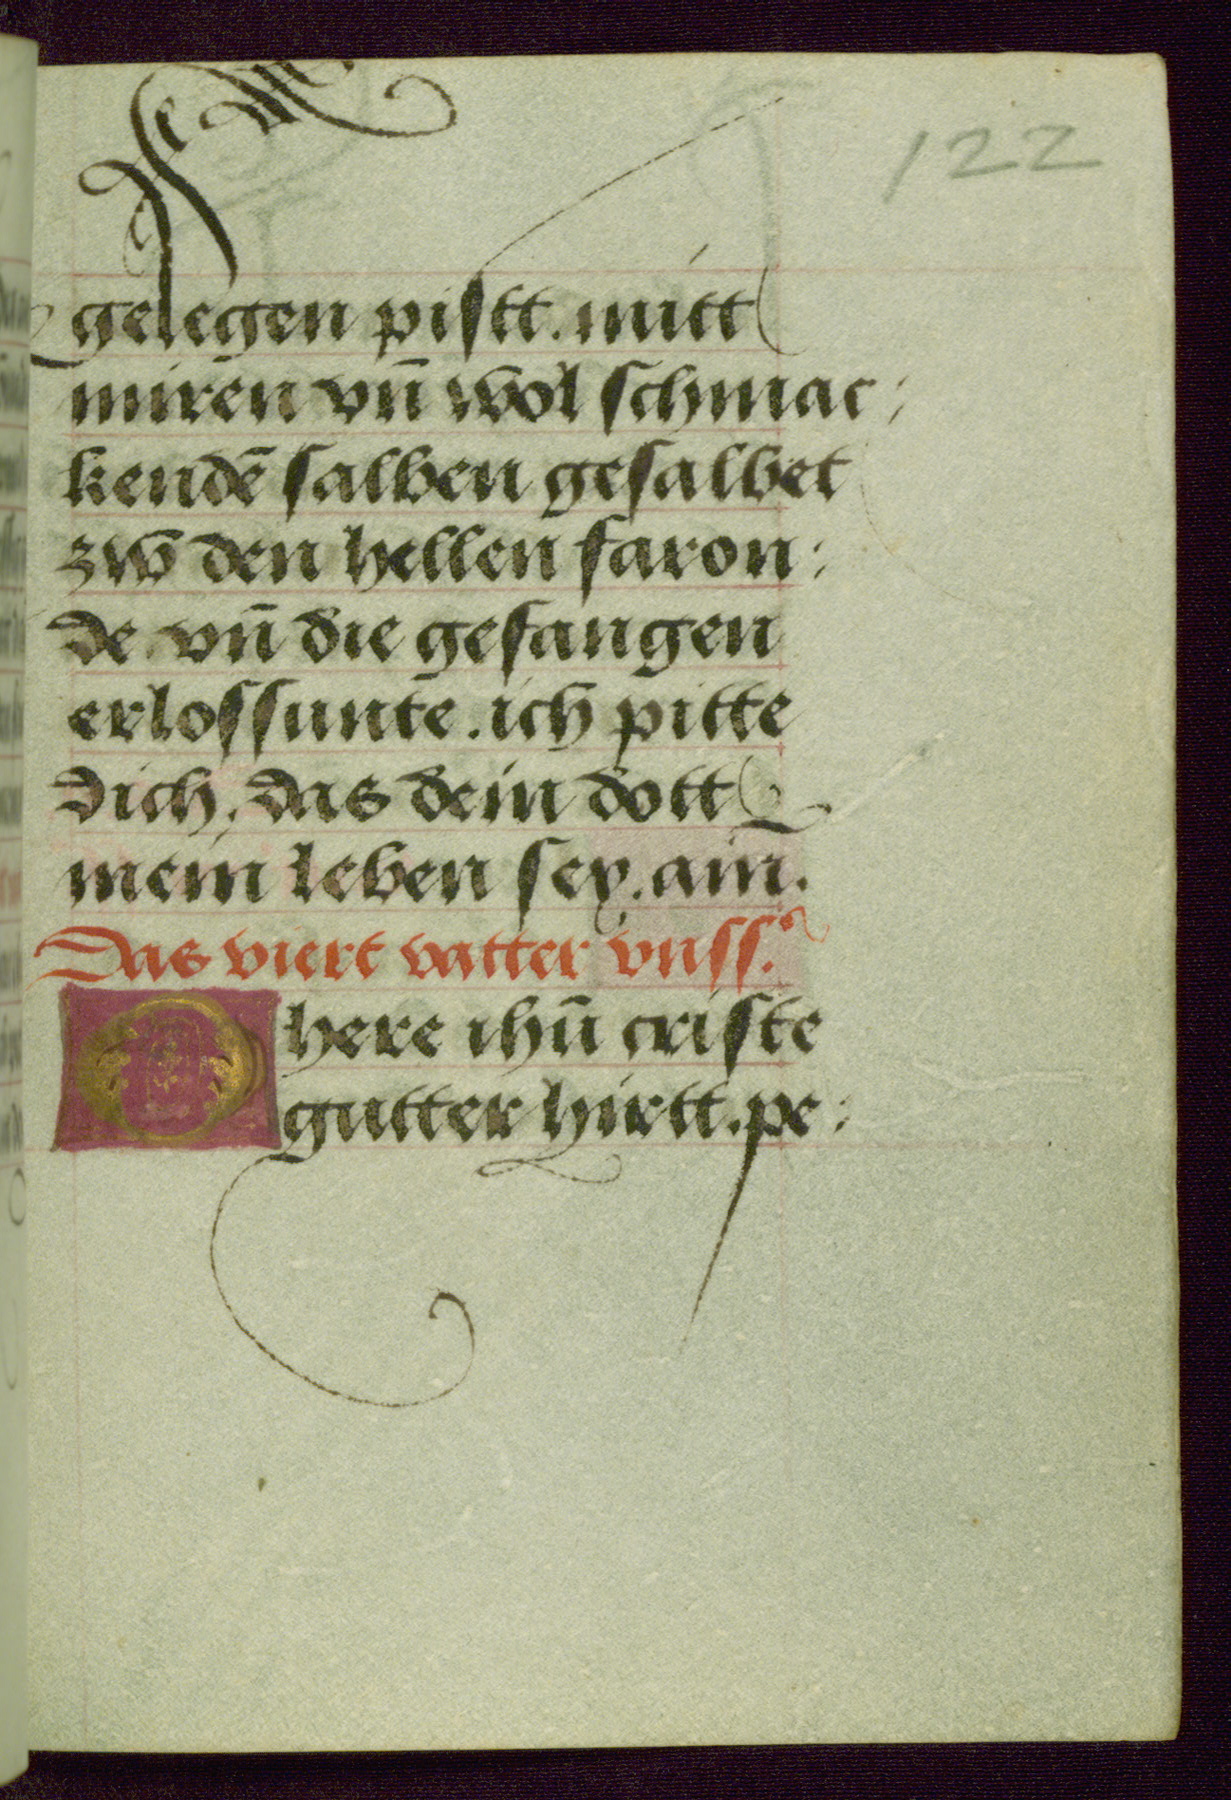 122
gelegen pistt. mitt
miren vn̄ wol schmac:
kendē salben gesalbet
zw den hellen faron:
de vn̄ die gefangen
erlossunte. ich pitte
dich. das dein dott
mein leben sey. ain.
Das viert vatter vnss.
O here ihū criste
gutter hirtt. pe: